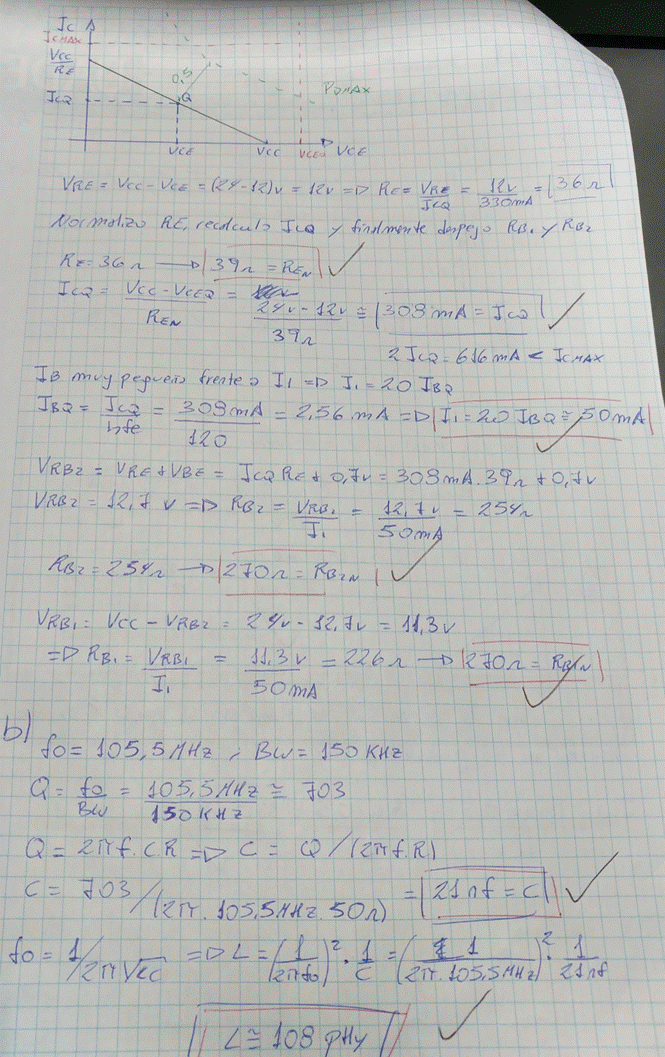 Ic
IcMAX
Vcc/RE
IcQ
0,5
Q
PDMAX
VCE
Vcc
VCEO
VCE
VRE = Vcc - VCE = (24-12)v = 12v => RE = VRE/IcQ = 12v/330mA = 36Ω
Normalizo RE, recalculo IcQ y finalmente despejo RB1 y RB2
RE = 36Ω → 39Ω = REN
IcQ = Vcc - VCEQ/REN = 24v - 12v/39Ω ≅ 308mA = IcQ
2IcQ = 616mA < IcMAX
IB muy pequeño frente a I1 => I1 = 20 IBQ
IBQ = IcQ/hfe = 308mA/120 = 2,56 mA => I1 = 20 IBQ ≅ 50mA
VRB2 = VRE + VBE = IcQ RE + 0,7v = 308mA . 39Ω + 0,7v
VRB2 = 12,7 v => RB2 = VRB1/I1 = 12,7v/50mA = 254Ω
RB2 = 254Ω → 270Ω = RB2N
VRB1 = Vcc - VRB2 = 24v - 12,7v = 11,3v
=> RB1 = VRB1/I1 = 11,3v/50mA = 226Ω → 270Ω = RB1N
b)
fo = 105,5 MHz , BW = 150 KHz
Q = fo/BW = 105,5MHz/150KHz ≅ 703
Q = 2πf.CR => C = Q/(2πf.R)
C = 703/(2π . 105,5MHz . 50Ω) = 21nf = C
fo = 1/2π√LC => L = (1/2πfo)² . 1/C = (1/2π.105,5MHz)² . 1/21nf
L ≅ 108 pHy